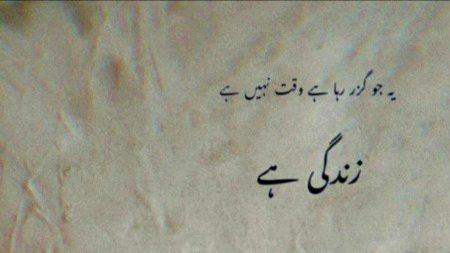 یہ جو گزر رہا ہے وقت نہیں ہے
زندگی ہے